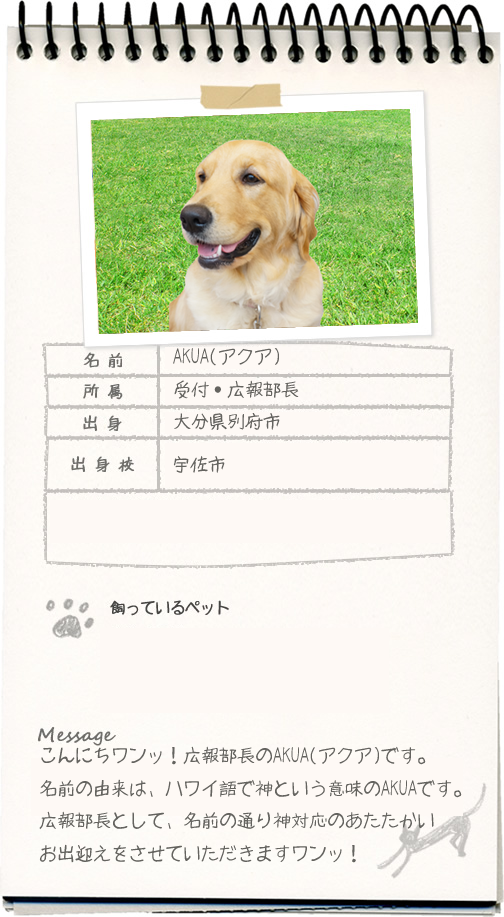 名前 AKUA(アクア)
所属 受付・広報部長
出身 大分県別府市
出身校 宇佐市
飼っているペット
Message
こんにちワンッ！広報部長のAKUA(アクア)です。
名前の由来は、ハワイ語で神という意味のAKUAです。
広報部長として、名前の通り神対応のあたたかい
お出迎えをさせていただきますワンッ！